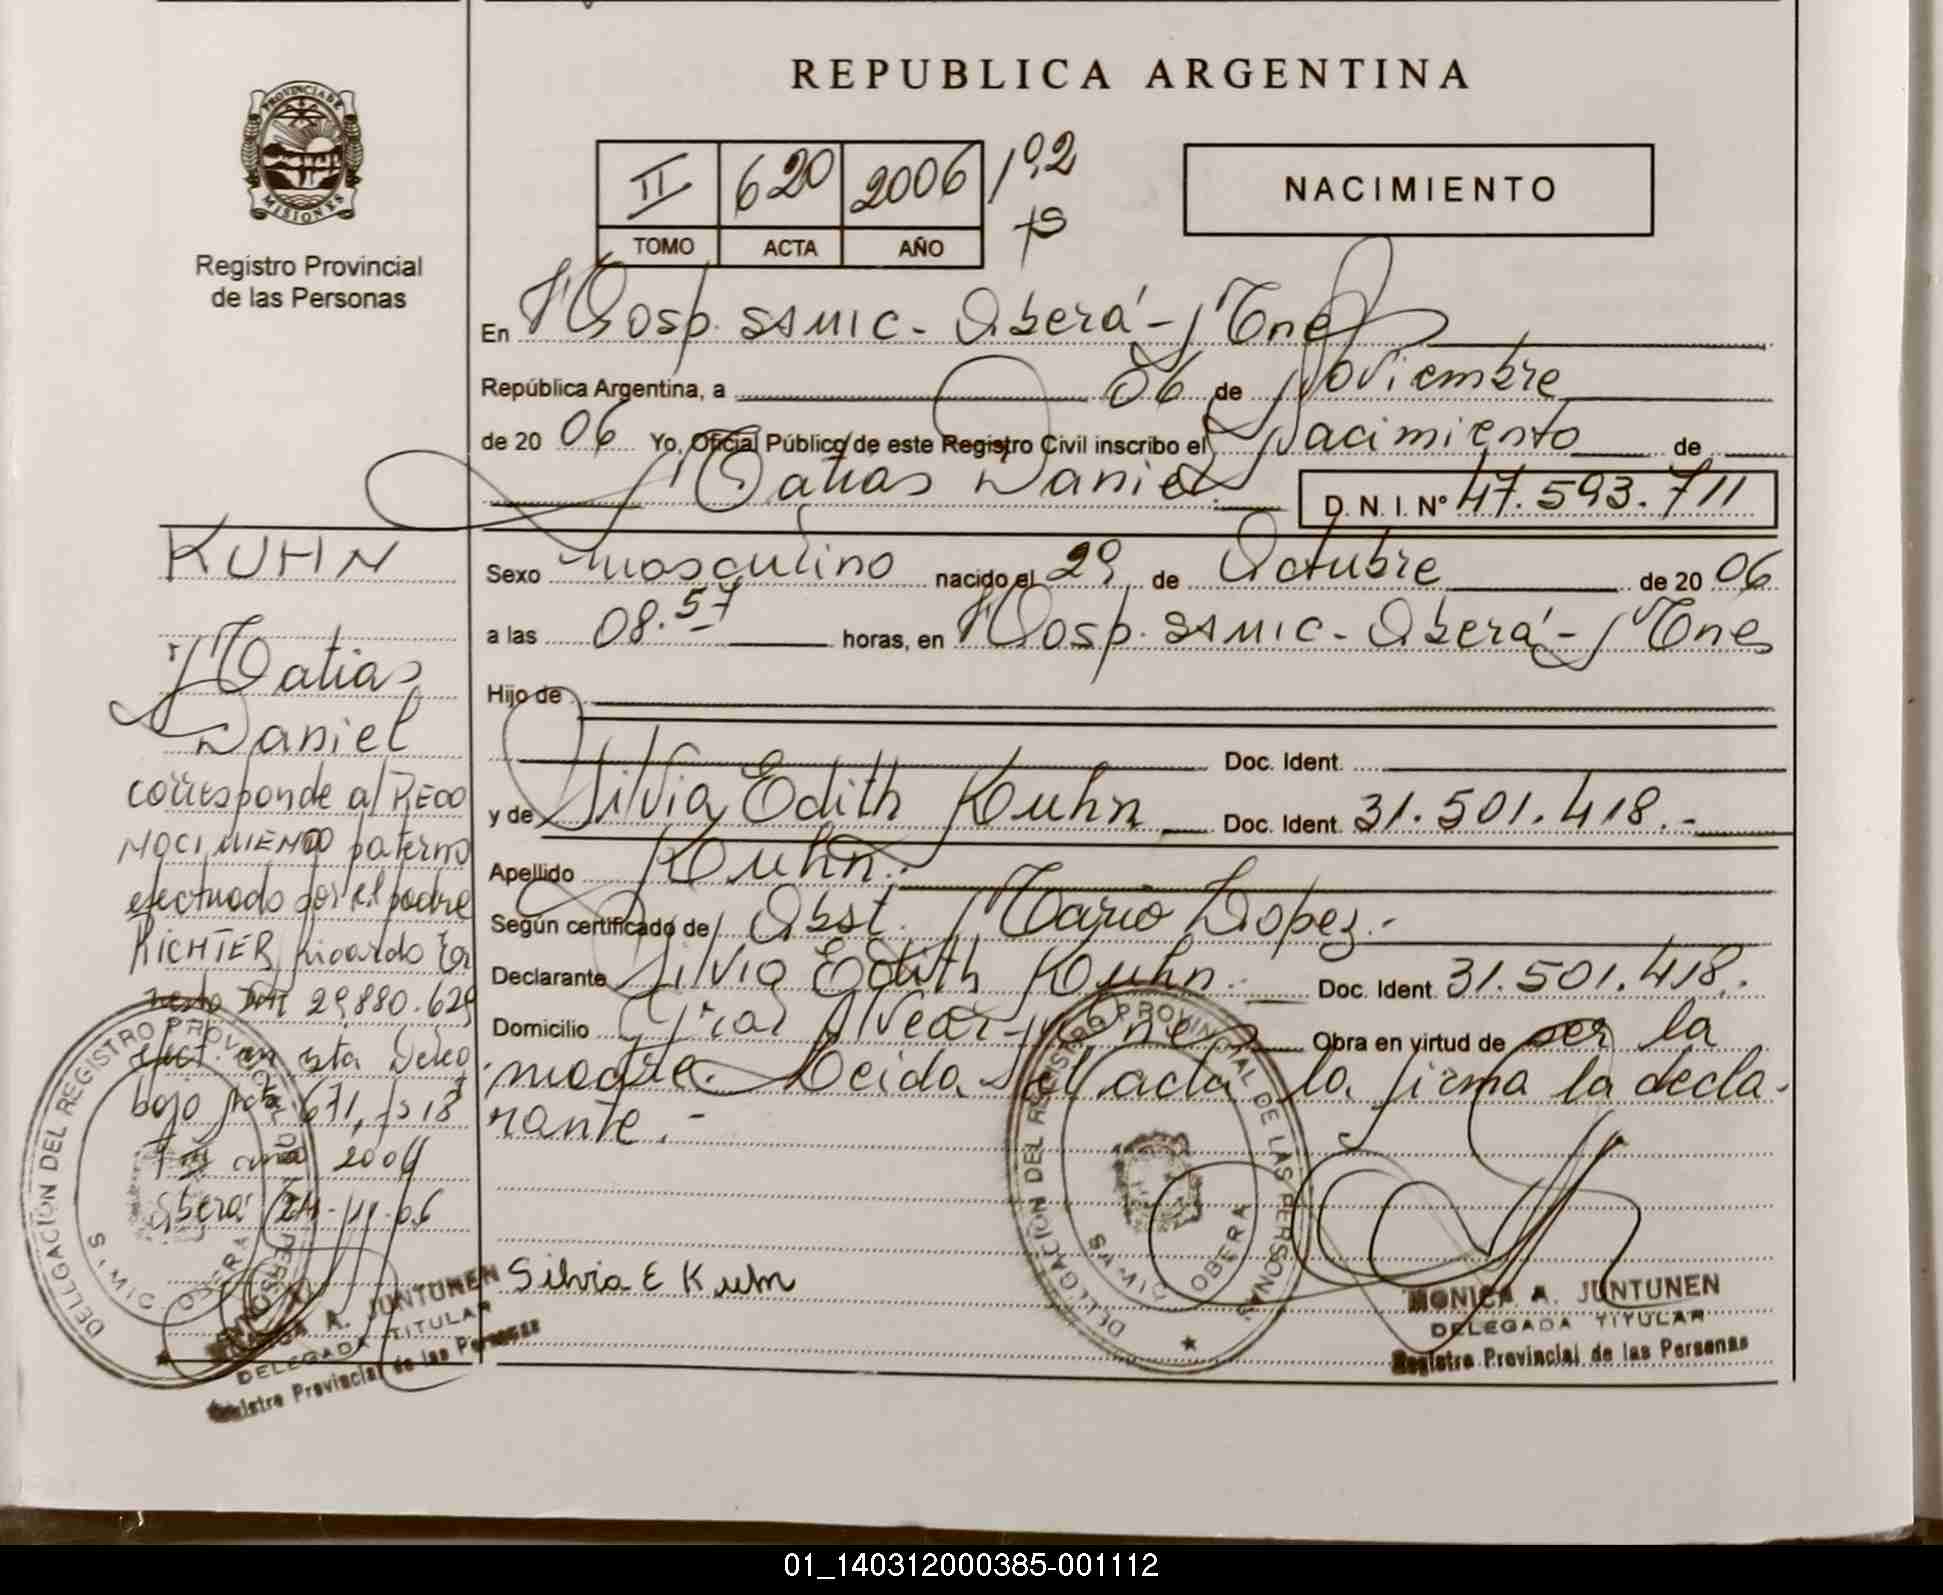 REPUBLICA ARGENTINA
PROVINCIA DE
MISIONES
Registro Provincial
de las Personas
II 620 2006 192
TOMO ACTA AÑO
NACIMIENTO
En Hosp. SAMIC - Oberá - Mnes
República Argentina, a 06 de Noviembre
de 20 06 Yo, Oficial Público de este Registro Civil inscribo el Nacimiento de
Matias Daniel D. N. I. Nº 47.593.711
Sexo masculino nacido el 29 de Octubre de 20 06
a las 08.57 horas, en Hosp. SAMIC - Oberá - Mnes
Hijo de
Doc. Ident.
y de Silvia Edith Kuhn Doc. Ident. 31.501.418.-
Apellido Kuhn.-
Según certificado de Obst. Mario Lopez.-
Declarante Silvia Edith Kuhn.- Doc. Ident. 31.501.418.-
Domicilio Gral Alvear - Mnes Obra en virtud de ser la
madre. Leida el acta la firma la decla-
rante.-
Silvia E Kuhn
DELEGACION DEL REGISTRO PROVINCIAL DE LAS PERSONAS
OBERA
MONICA A. JUNTUNEN
DELEGADA TITULAR
Registro Provincial de las Personas
KUHN
Matias
Daniel
corresponde al RECO
NOCIMIENTO paterno
efectuado por el padre
RICHTER Ricardo Er
nesto DNI 29.880.629
en esta Deleg
bajo acta 671, fs 18
año 2006
Oberá 24-11-06
DELEGACION DEL REGISTRO PROVINCIAL DE LAS PERSONAS
OBERA
MONICA A. JUNTUNEN
DELEGADA TITULAR
Registro Provincial de las Personas
01_140312000385-001112